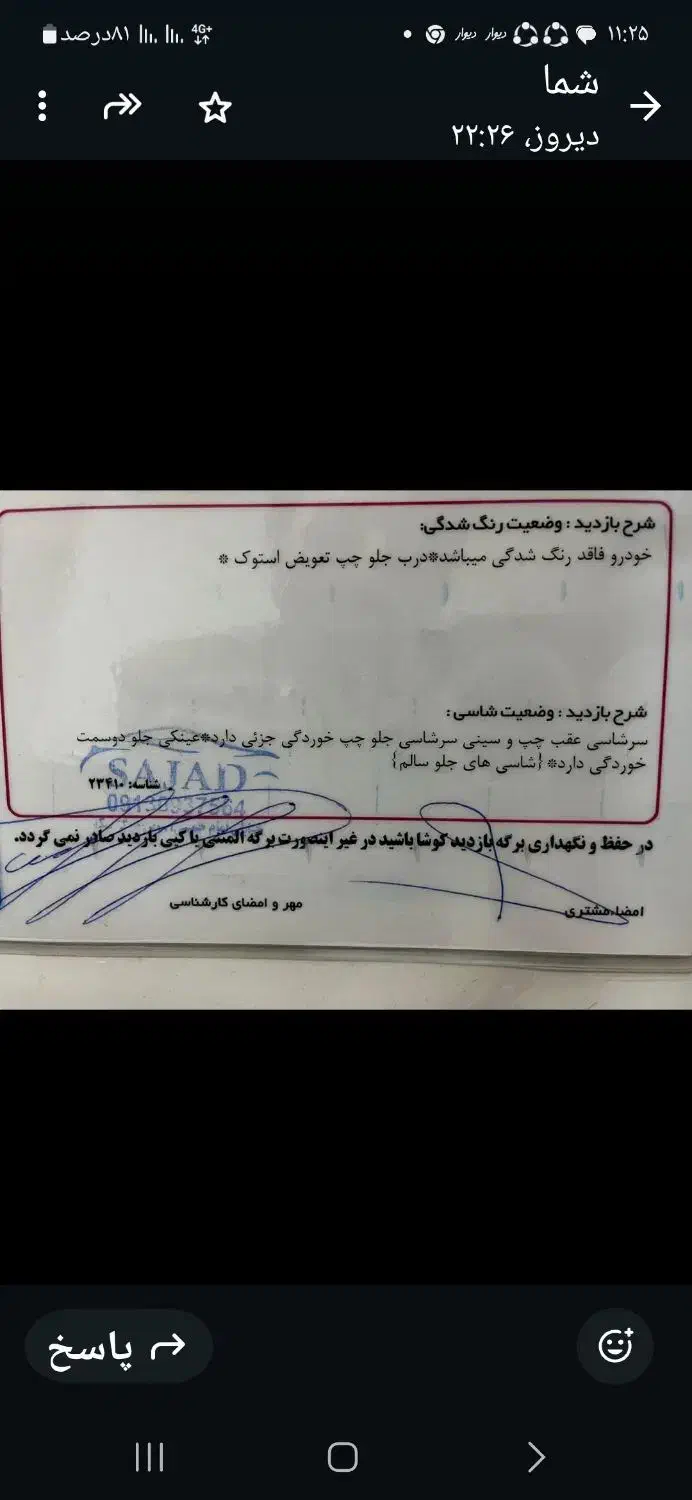 ۱۱:۲۵ دیوار دیوار ۸۱درصد 4G+
شما
دیروز، ۲۲:۲۶
شرح بازدید : وضعیت رنگ شدگی:
خودرو فاقد رنگ شدگی میباشد*درب جلو چپ تعویض استوک *
شرح بازدید : وضعیت شاسی :
سرشاسی عقب چپ و سینی سرشاسی جلو چپ خوردگی جزئی دارد*عینکی جلو دوسمت
خوردگی دارد* {شاسی های جلو سالم}
SAJAD
شناسه: ۲۳۴۱۰
در حفظ و نگهداری برگه بازدید کوشا باشید در غیر اینصورت برگه المثنی یا کپی بازدید صادر نمی گردد.
امضا مشتری
مهر و امضای کارشناسی
پاسخ